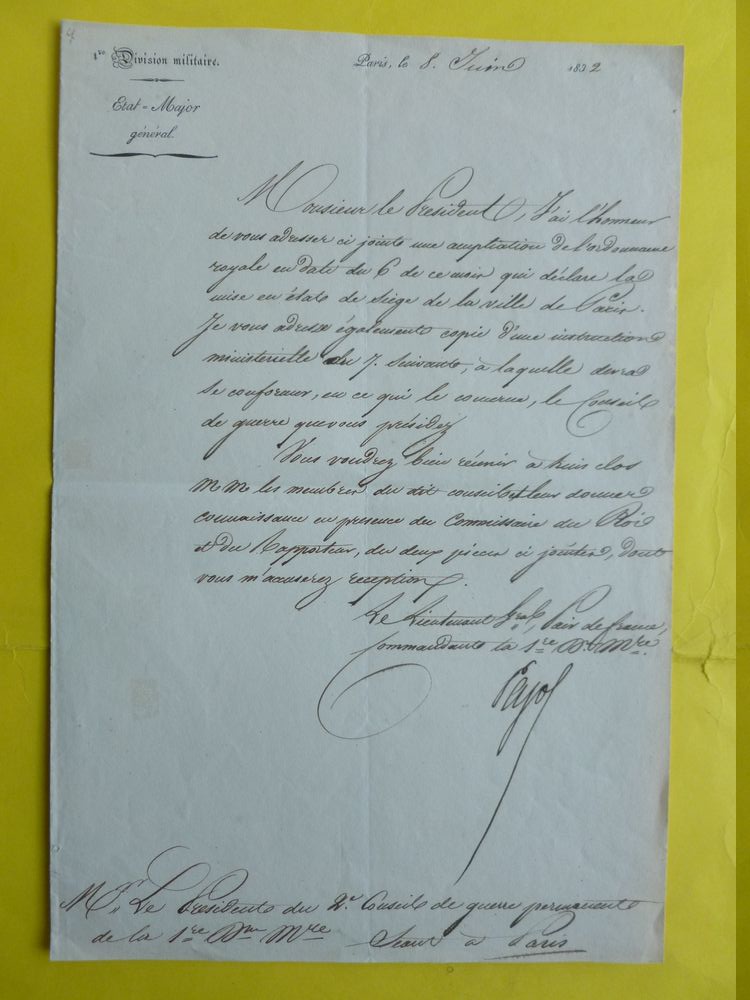 1re Division militaire.
Etat=Major
général.
Paris, le 8. Juin 1832
Monsieur le Président, J'ai l'honneur
de vous adresser ci joints une ampliation de l'ordonnance
royale en date du 6 de ce mois qui déclare la
mise en état de siège de la ville de Paris.
Je vous adresse également copie d'une instruction
ministérielle du 7. suivant, à laquelle devra
se conformer, en ce qui le concerne, le Conseil
de guerre que vous présidez
Vous voudrez bien réunir à huis clos
MM les membres du dit conseil et leur donner
connaissance en présence du Commissaire du Roi
et du Rapporteur, des deux pièces ci jointes, dont
vous m'accuserez reception.
Le Lieutenant Gral, Pair de france,
Commandant la 1re Don Mre
Pajol
Mr. Le Président du 2e. Conseil de guerre permanent
de la 1re Don Mre Séant à Paris